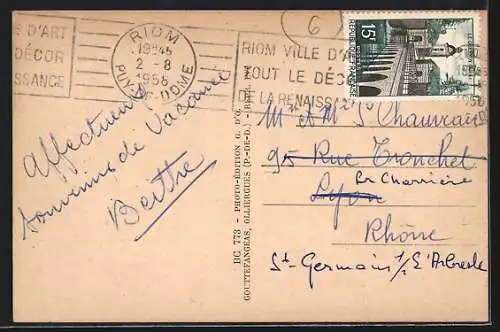 E D'ART
DÉCOR
ISSANCE
RIOM
19H45
2-8
1958
PUY-DE-DOME
RIOM VILLE D'A
TOUT LE DÉCO
DE LA RENAISSA
6
15F
RÉPUBLIQUE FRANÇAISE
LE QUESNOY
Affectueux
souvenirs de Vacances
Berthe
BC 773 - PHOTO-ÉDITION G. D'O.
GOUTTEFANGEAS, OLLIERGUES (P.-DE-D.)
Mr & Me Chauvrain
95 Rue Tronchet
La Charrière
Lyon
Rhône
St-Germain s/ L'Arbresle